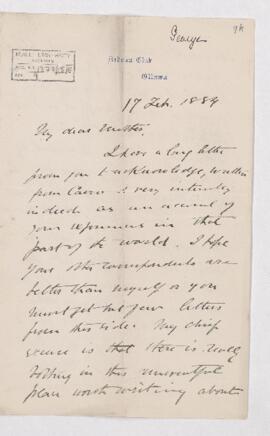 George
Rideau Club
Ottawa
17 Feb. 1884
My dear
I have a long letter
from you to acknowledge, written
from Cairo & very interesting
indeed as an account of
your experiences in that
part of the world. I hope
your other correspondents are
better than myself or you
must get but few letters
from this side. My chief
excuse is that there is really
nothing in this uneventful
place worth writing about